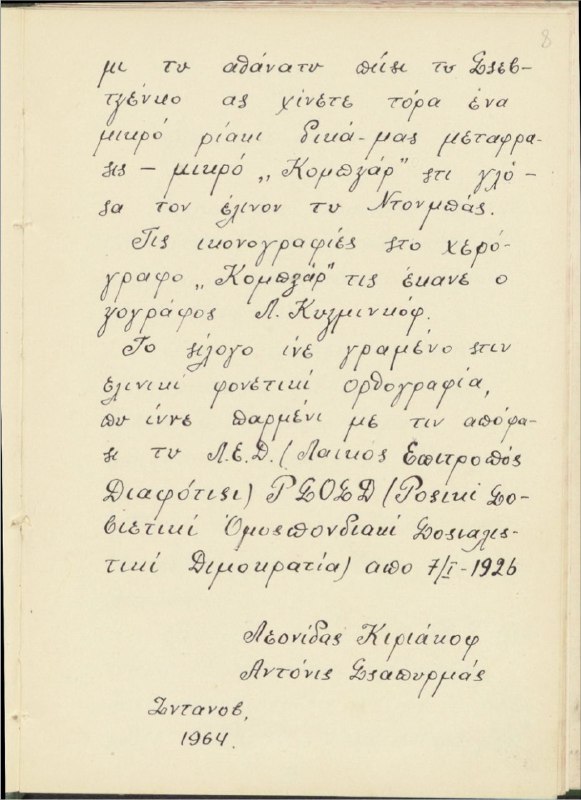 8
μι τυ αθάνατυ πίισι τυ Σςεβ-
τςένκο ας χίνετε τόρα ένα
μικρό ρίακι δικά-μας μεταφρα-
ςις – μικρό „Κομπζάρ" ςτι γλό-
ςα τον έλινον τυ Ντονμπάς.
Τις ικονογραφίες ςτο χερό-
γραφο „Κομπζάρ" τις έκανε ο
ζογράφος Λ. Κυζμινκόφ.
Το ςίλογο ίνε γραμένο ςτιν
ελινικί φονετικί ορθογραφία,
πυ ίννε παρμένι με τιν απόφα-
ςι τυ Λ.Ε.Δ. (Λαικός Επιτροπός
Διαφότιςι) ΡΣΟΣΔ (Ροςικί Σο-
βιετικί Ομοςπονδιακί Σοςιαλις-
τικί Διμοκρατία) απο 7/I-1926
Λεονίδας Κιριάκοφ
Αντόνις Σςαπυρμάς
Ζντανοβ,
1964.